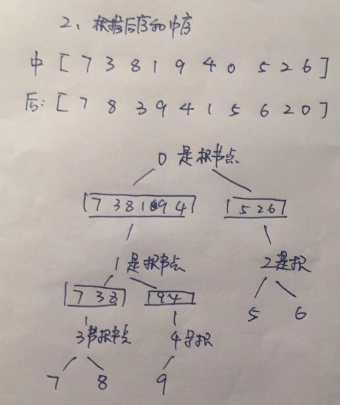 2、根据后序和中序
中 [ 7 3 8 1 9 4 0 5 2 6 ]
后: [ 7 8 3 9 4 1 5 6 2 0 ]
0 是根节点
[7 3 8 1 9 4] [5 2 6]
1 是根节点 2是根
[7 3 8] [9 4] 5 6
3是根节点 4是根
7 8 9